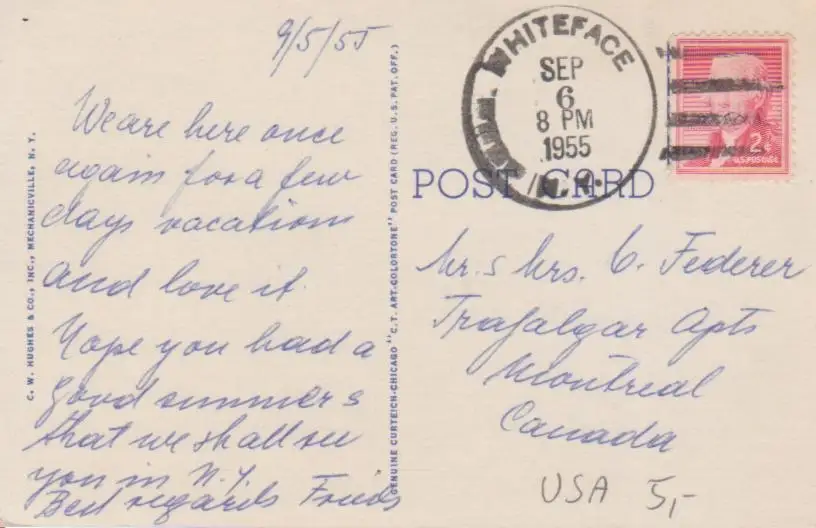 9/5/55
We are here once
again for a few
days vacation
and love it.
Hope you had a
good summer &
that we shall see
you in N.Y.
Best regards
C. W. HUGHES & CO., INC., MECHANICVILLE, N. Y.
GENUINE CURTEICH-CHICAGO "C. T. ART-COLORTONE" POST CARD (REG. U. S. PAT. OFF.)
POST CARD
WHITEFACE
SEP
6
8 PM
1955
N.Y.
2¢
U.S. POSTAGE
Mr. & Mrs. C. Federer
Trafalgar Apts
Montreal
Canada
USA 5,-